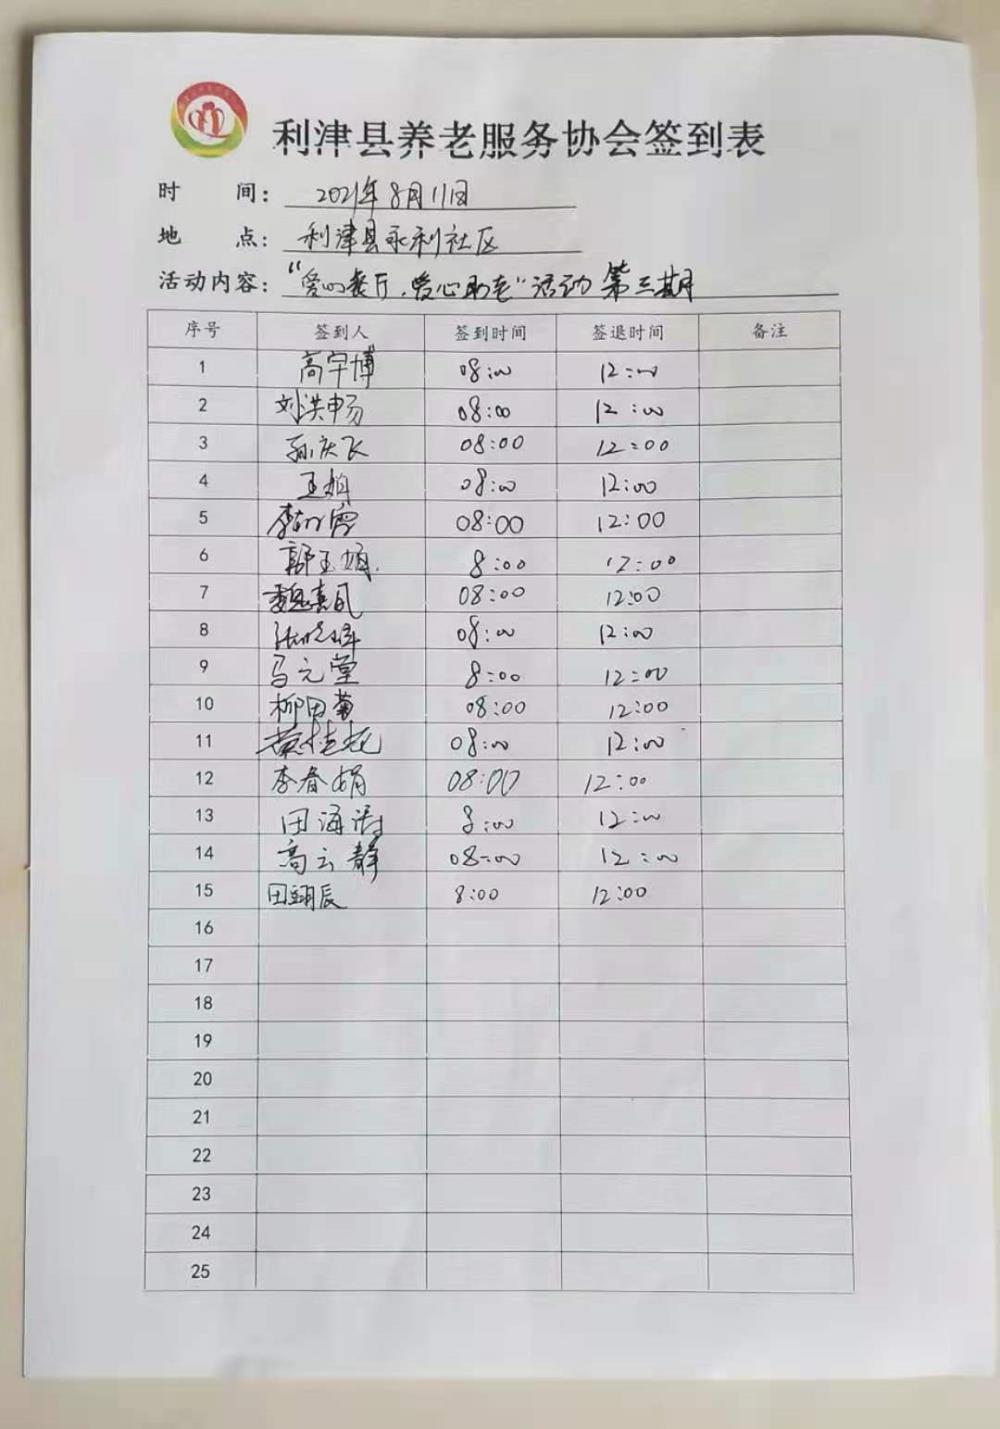 利津县养老服务协会签到表
时 间: 2021年8月11日
地 点: 利津县永利社区
活动内容: "爱心餐厅,爱心助老"活动 第三期
序号 签到人 签到时间 签退时间 备注
1 高宇博 08:00 12:00
2 刘洪申易 08:00 12:00
3 孙庆飞 08:00 12:00
4 王娟 08:00 12:00
5 李 08:00 12:00
6 郭玉娟. 8:00 12:00
7 魏真凤 08:00 12:00
8 张晓 08:00 12:00
9 马元堂 8:00 12:00
10 柳田菊 08:00 12:00
11 黄桂花 08:00 12:00
12 李春娟 08:00 12:00
13 田海涛 8:00 12:00
14 高云静 08:00 12:00
15 田翊辰 8:00 12:00
16
17
18
19
20
21
22
23
24
25